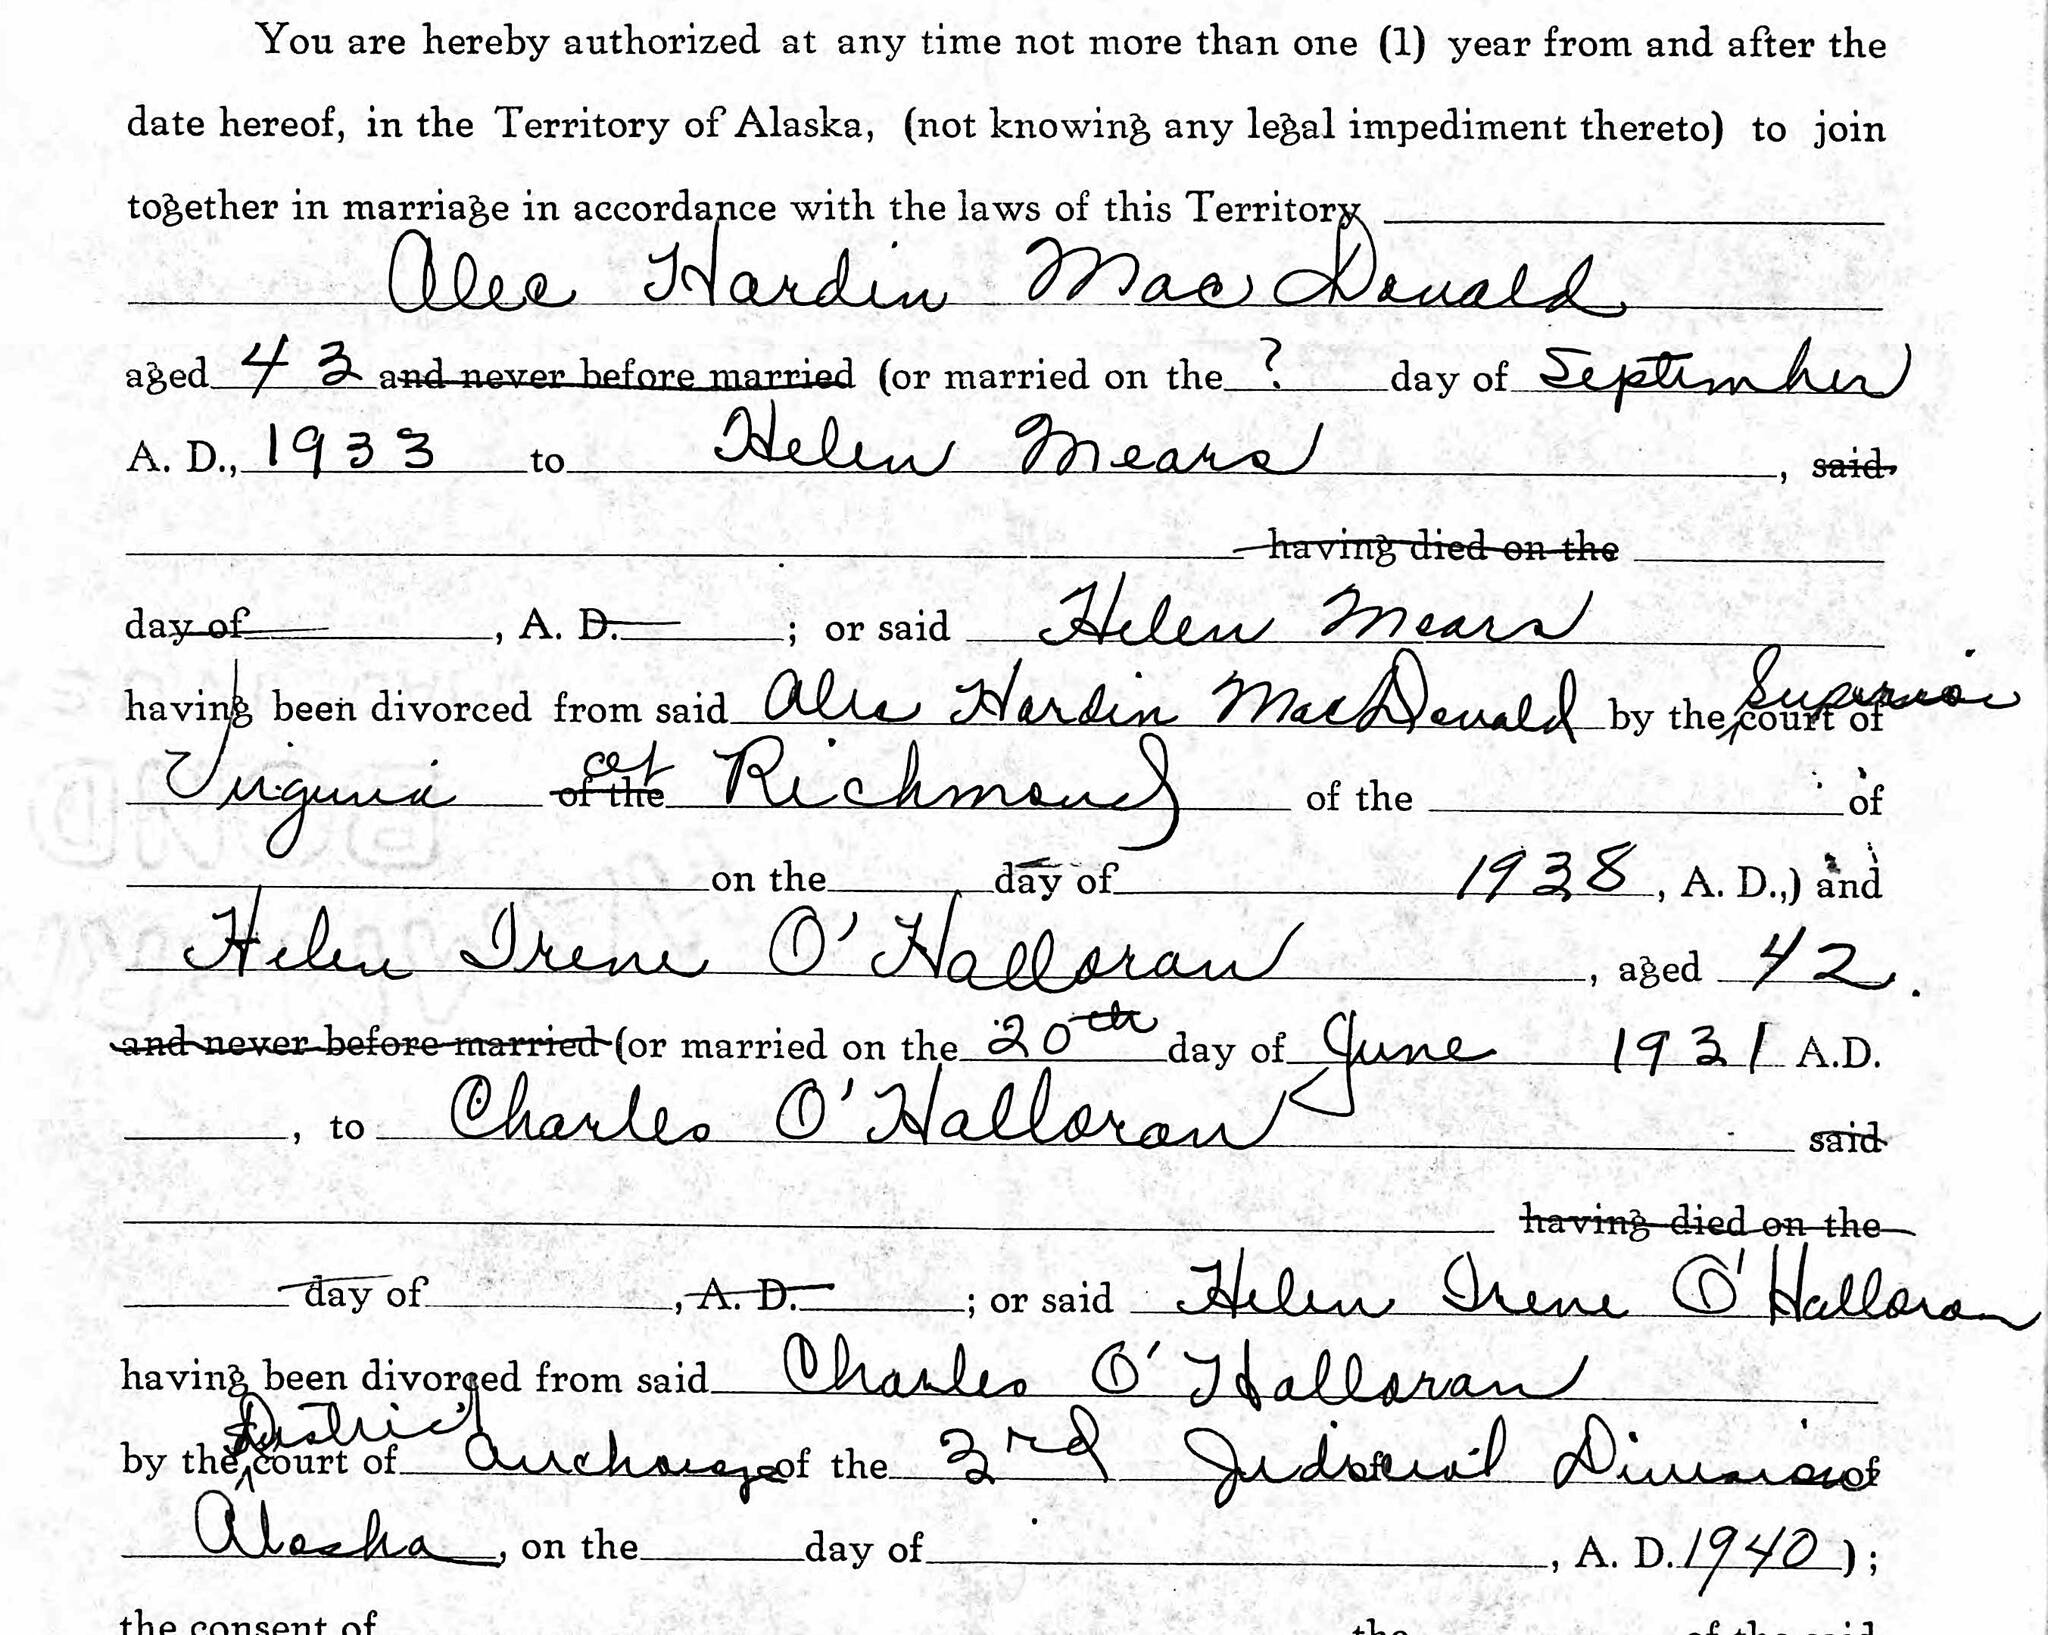 You are hereby authorized at any time not more than one (1) year from and after the
date hereof, in the Territory of Alaska, (not knowing any legal impediment thereto) to join
together in marriage in accordance with the laws of this Territory
Alec Hardin MacDonald
aged 43 and never before married (or married on the ? day of September
A. D., 1933 to Helen Mears, said
having died on the
day of , A. D. ; or said Helen Mears
having been divorced from said Alec Hardin MacDonald by the Superior court of
Virginia of the at Richmond of the of
on the day of 1938, A. D.,) and
Helen Irene O'Halloran, aged 42.
and never before married (or married on the 20th day of June 1931 A.D.
, to Charles O'Halloran said
having died on the
day of , A. D. ; or said Helen Irene O'Halloran
having been divorced from said Charles O'Halloran
by the District court of Anchorage of the 3rd Judicial Division of
Alaska, on the day of , A. D. 1940 );
the consent of the of the said